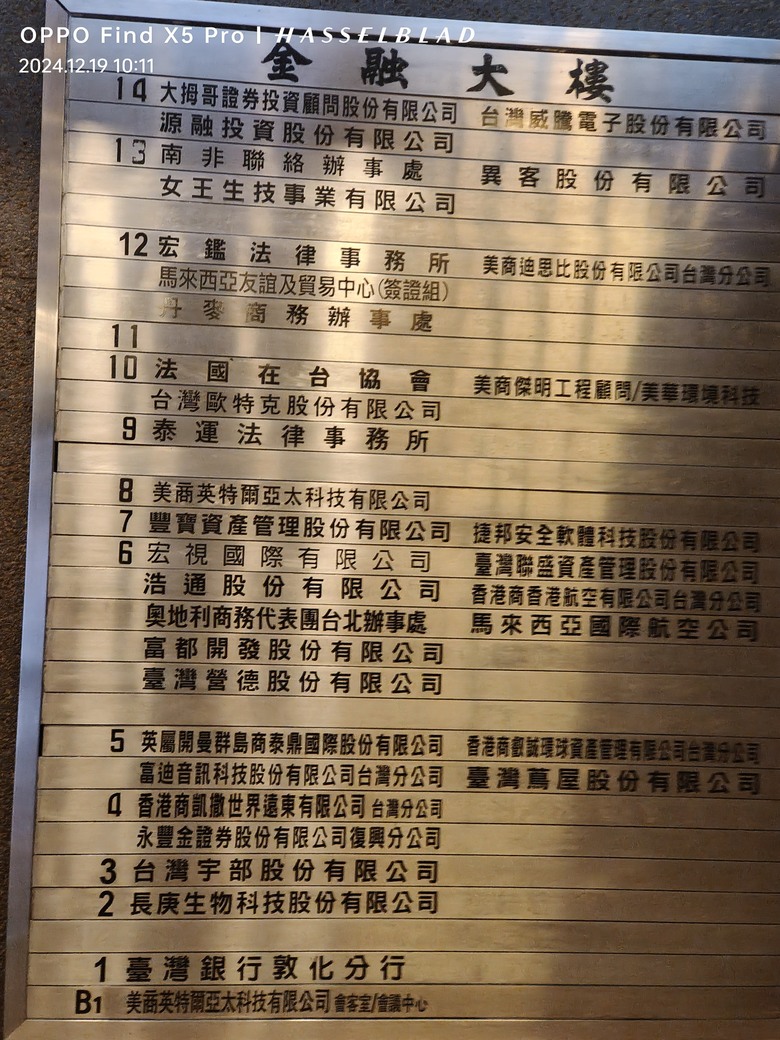 OPPO Find X5 Pro | HASSELBLAD
2024.12.19 10:11
金融大樓
14 大拇哥證券投資顧問股份有限公司 台灣威騰電子股份有限公司
源融投資股份有限公司
13 南非聯絡辦事處 異客股份有限公司
女王生技事業有限公司
12 宏鑑法律事務所 美商迪思比股份有限公司台灣分公司
馬來西亞友誼及貿易中心(簽證組)
丹麥商務辦事處
11
10 法國在台協會 美商傑明工程顧問/美華環境科技
台灣歐特克股份有限公司
9 泰運法律事務所
8 美商英特爾亞太科技有限公司
7 豐寶資產管理股份有限公司 捷邦安全軟體科技股份有限公司
6 宏視國際有限公司 臺灣聯盛資產管理股份有限公司
浩通股份有限公司 香港商香港航空有限公司台灣分公司
奧地利商務代表團台北辦事處 馬來西亞國際航空公司
富都開發股份有限公司
臺灣營德股份有限公司
5 英屬開曼群島商泰鼎國際股份有限公司 香港商叡誠環球資產管理有限公司台灣分公司
富迪音訊科技股份有限公司台灣分公司 臺灣蔦屋股份有限公司
4 香港商凱撒世界遠東有限公司台灣分公司
永豐金證券股份有限公司復興分公司
3 台灣宇部股份有限公司
2 長庚生物科技股份有限公司
1 臺灣銀行敦化分行
B1 美商英特爾亞太科技有限公司 會客室/會議中心